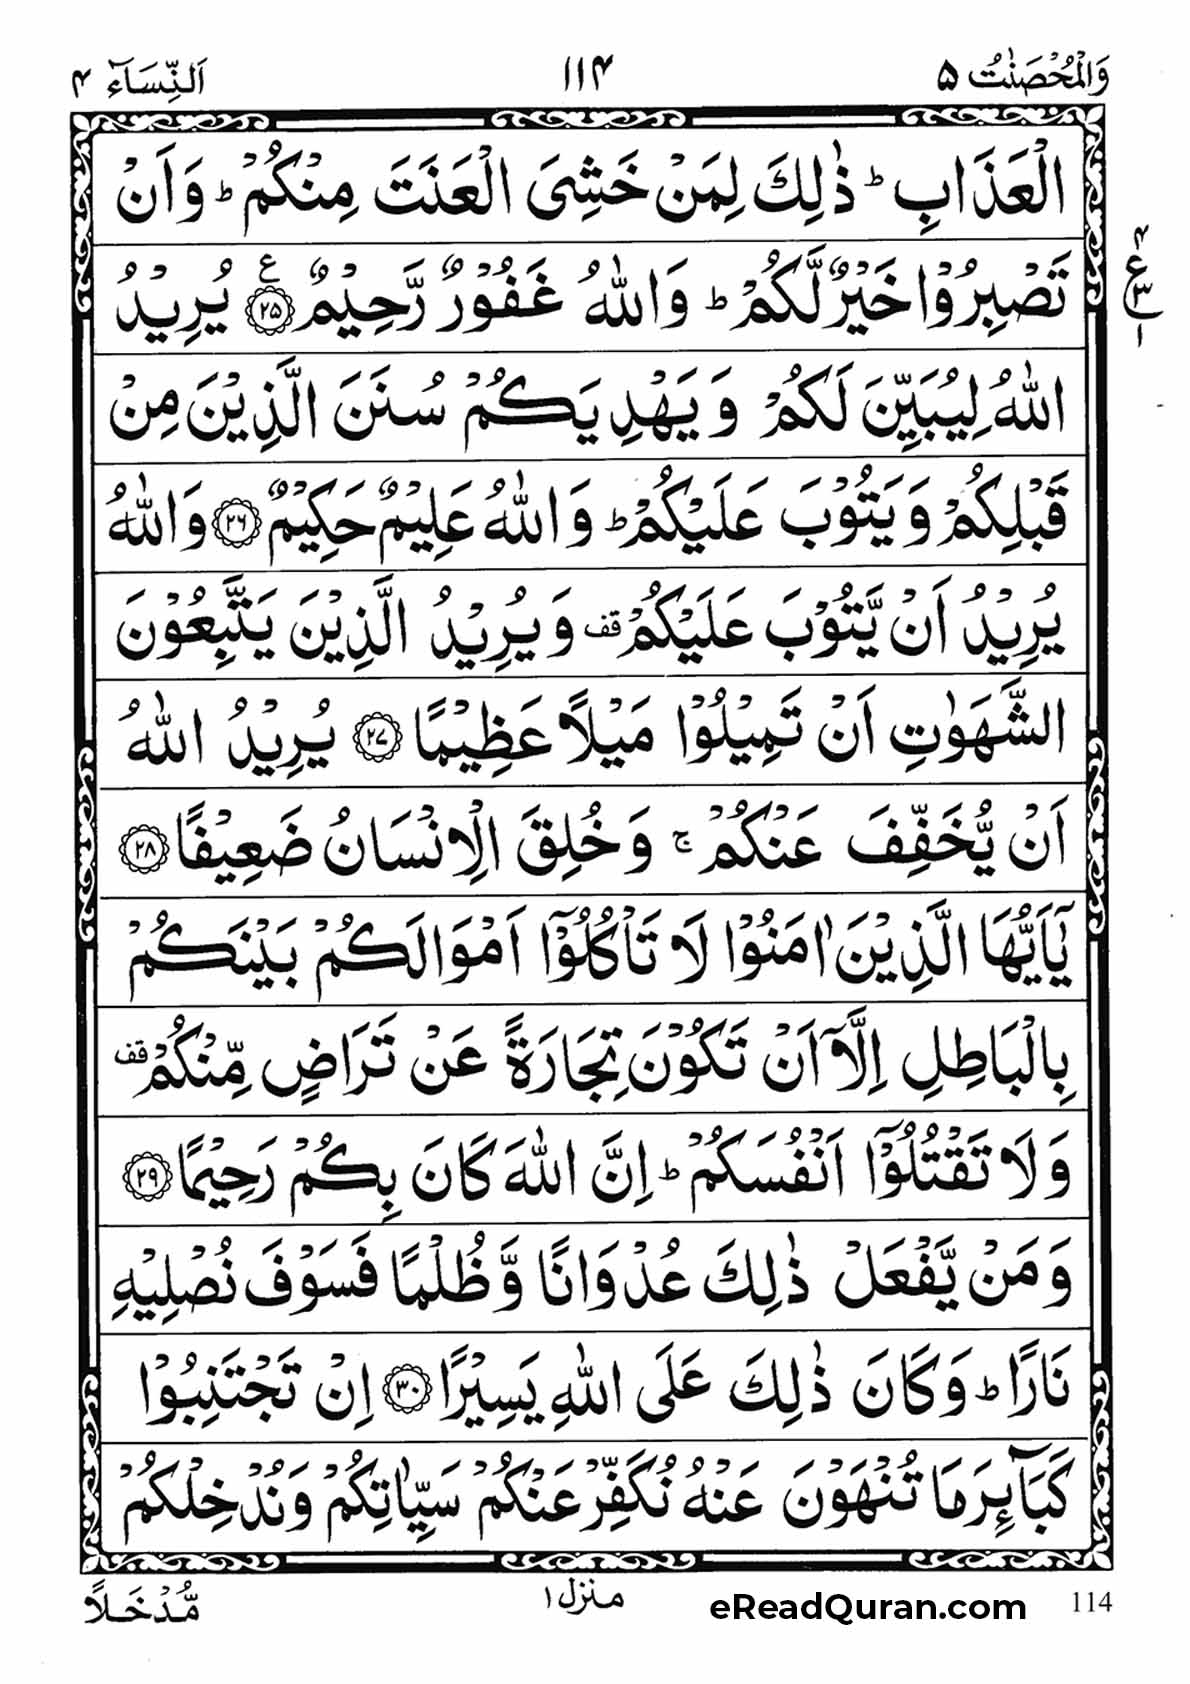 وَالْمُحْصَنٰتُ ۵
۱۱۴
اَلنِّسَآءُ ۴
الْعَذَابِ ؕ ذٰلِكَ لِمَنْ خَشِىَ الْعَنَتَ مِنْكُمْ ؕ وَاَنْ
تَصْبِرُوْا خَيْرٌ لَّكُمْ ؕ وَاللّٰهُ غَفُوْرٌ رَّحِيْمٌ ﴿۲۵﴾ ع يُرِيْدُ
۴
ع
۳
۱
اللّٰهُ لِيُبَيِّنَ لَكُمْ وَيَهْدِيَكُمْ سُنَنَ الَّذِيْنَ مِنْ
قَبْلِكُمْ وَيَتُوْبَ عَلَيْكُمْ ؕ وَاللّٰهُ عَلِيْمٌ حَكِيْمٌ ﴿۲۶﴾ وَاللّٰهُ
يُرِيْدُ اَنْ يَّتُوْبَ عَلَيْكُمْ قف وَيُرِيْدُ الَّذِيْنَ يَتَّبِعُوْنَ
الشَّهَوٰتِ اَنْ تَمِيْلُوْا مَيْلًا عَظِيْمًا ﴿۲۷﴾ يُرِيْدُ اللّٰهُ
اَنْ يُّخَفِّفَ عَنْكُمْ ۚ وَخُلِقَ الْاِنْسَانُ ضَعِيْفًا ﴿۲۸﴾
يٰۤاَيُّهَا الَّذِيْنَ اٰمَنُوْا لَا تَاْكُلُوْۤا اَمْوَالَكُمْ بَيْنَكُمْ
بِالْبَاطِلِ اِلَّاۤ اَنْ تَكُوْنَ تِجَارَةً عَنْ تَرَاضٍ مِّنْكُمْ قف
وَلَا تَقْتُلُوْۤا اَنْفُسَكُمْ ؕ اِنَّ اللّٰهَ كَانَ بِكُمْ رَحِيْمًا ﴿۲۹﴾
وَمَنْ يَّفْعَلْ ذٰلِكَ عُدْوَانًا وَّظُلْمًا فَسَوْفَ نُصْلِيْهِ
نَارًا ؕ وَكَانَ ذٰلِكَ عَلَى اللّٰهِ يَسِيْرًا ﴿۳۰﴾ اِنْ تَجْتَنِبُوْا
كَبَآئِرَ مَا تُنْهَوْنَ عَنْهُ نُكَفِّرْ عَنْكُمْ سَيِّاٰتِكُمْ وَنُدْخِلْكُمْ
مُّدْخَلًا
منزل ۱
eReadQuran.com
114